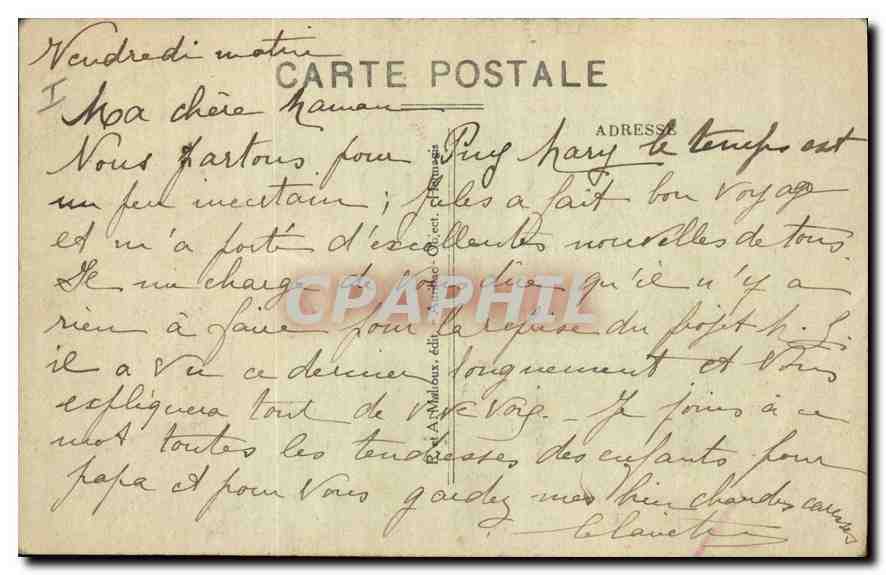 Vendredi matin
CARTE POSTALE
I
Ma chère Maman
ADRESSE
Nous partons pour Puy Mary le temps est
un peu incertain ; Jules a fait bon voyage
et m'a porté d'excellentes nouvelles de tous.
Je me charge de vous dire qu'il n'y a
rien à faire pour la reprise du projet
il a vu ce dernier longuement et vous
expliquera tout de vive voix. Je joins à ce
mot toutes les tendresses des enfants pour
papa et pour vous gardez mes bien chaudes caresses
édit. Aurillac - Object.
CPAPHIL